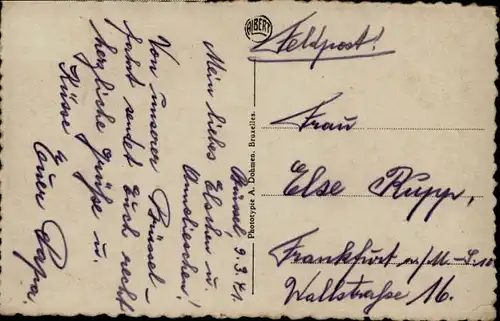 Brüssel 9.3.41.
Mein liebes Elschen u.
Annelieschen!
Von unserer Brüssel-
fahrt sendet Euch recht
herzliche Grüße u.
Küsse Euer Papa.
ALBERT
Phototypie A. Dohmen, Bruxelles.
Feldpost!
Frau
Else Rupp,
Frankfurt a/M.-S.10
Wallstraße 16.